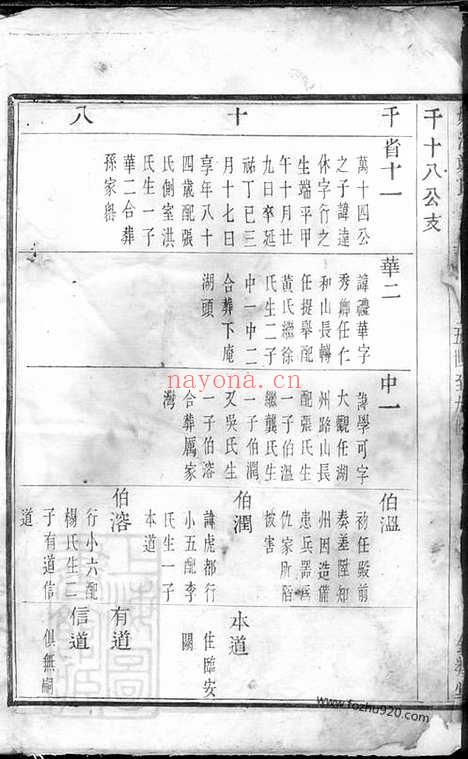 千十八公支
千
十
八
省十一
萬十四公
之子諱達
休字行之
生端平甲
午十月廿
九日卒延
祐丁巳三
月十七日
享年八十
四歲配張
氏側室洪
氏生一子
華二合葬
孫家㘭
華二
諱禮華字
秀卿任仁
和山長轉
任提舉配
黃氏繼徐
氏生二子
中一中二
合葬下庵
湖頭
中一
諱學可字
大觀任湖
州路山長
配張氏生
一子伯溫
繼龔氏生
一子伯潤
又吳氏生
一子伯溶
合葬厲家
灣
伯溫
初任殿前
奏差陞知
州因造備
患兵器爲
仇家所陷
被害
伯潤
諱虎都行
小五配李
氏生一子
本道
伯溶
行小六配
楊氏生二
子有道信
道
本道
住臨安
關
有道
信道
俱無嗣
nayona.cn
www.fozhu920.com